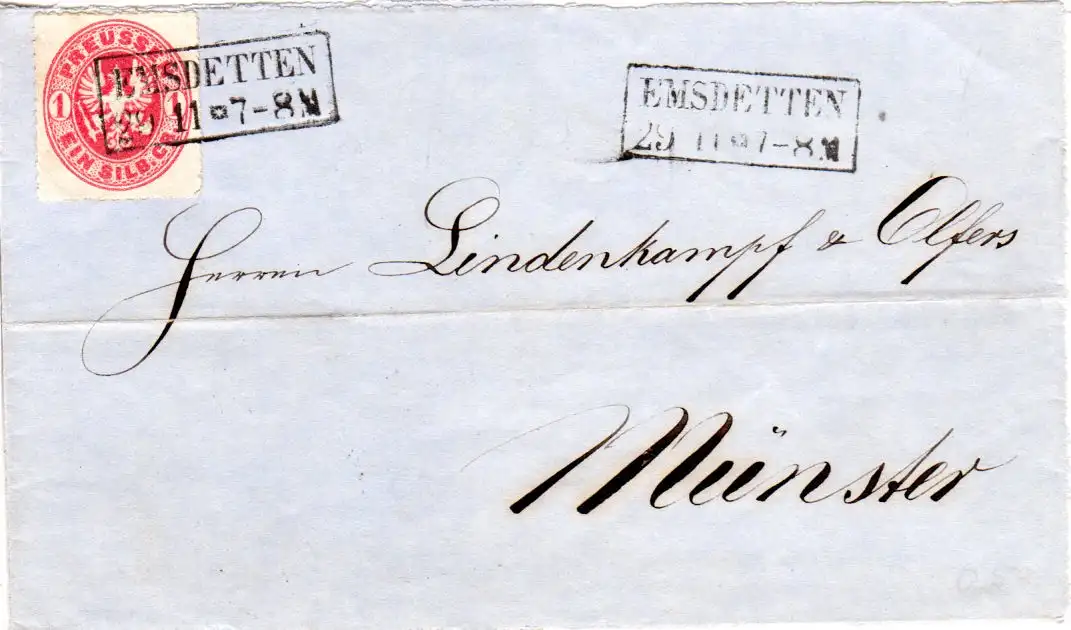 PREUSSEN
1 1
EIN SILB.GR.
EMSDETTEN
29 11 7-8 N
EMSDETTEN
29 11 7-8 N
Herren Lindenkampf & Olfers
Münster